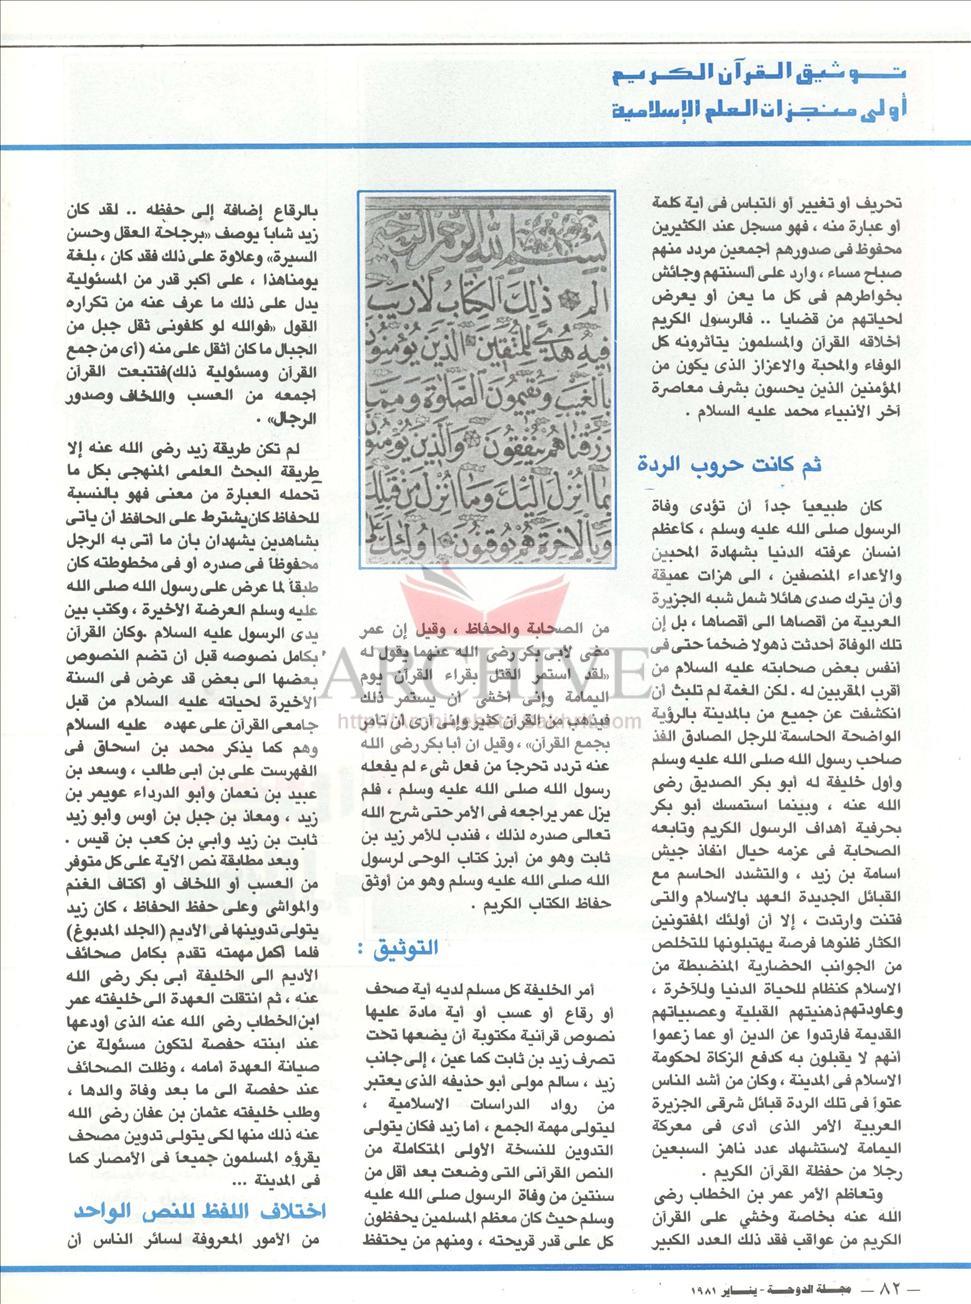 توثيق القرآن الكريم
أولى منجزات العلم الإسلامية
تحريف أو تغيير أو التباس فى أية كلمة
أو عبارة منه ، فهو مسجل عند الكثيرين
محفوظ فى صدورهم أجمعين مردد منهم
صباح مساء ، وارد على ألسنتهم وجائش
بخواطرهم فى كل ما يعن أو يعرض
لحياتهم من قضايا .. فالرسول الكريم
أخلاقه القرآن والمسلمون يتأثرونه كل
الوفاء والمحبة والاعزاز الذى يكون من
المؤمنين الذين يحسون بشرف معاصرة
آخر الأنبياء محمد عليه السلام .
ثم كانت حروب الردة
كان طبيعياً جداً أن تؤدى وفاة
الرسول صلى الله عليه وسلم ، كأعظم
انسان عرفته الدنيا بشهادة المحبين
والأعداء المنصفين ، الى هزات عميقة
وأن يترك صدى هائلا شمل شبه الجزيرة
العربية من أقصاها الى أقصاها ، بل إن
تلك الوفاة أحدثت ذهولا ضخماً حتى فى
أنفس بعض صحابته عليه السلام من
أقرب المقربين له . لكن الغمة لم تلبث أن
انكشفت عن جميع من بالمدينة بالرؤية
الواضحة الحاسمة للرجل الصادق الفذ
صاحب رسول الله صلى الله عليه وسلم
وأول خليفة له أبو بكر الصديق رضى
الله عنه ، وبينما استمسك أبو بكر
بحرفية أهداف الرسول الكريم وتابعه
الصحابة فى عزمه حيال انفاذ جيش
اسامة بن زيد ، والتشدد الحاسم مع
القبائل الجديدة العهد بالاسلام والتى
فتنت وارتدت ، إلا أن أولئك المفتونين
الكثار ظنوها فرصة يهتبلونها للتخلص
من الجوانب الحضارية المنضبطة من
الاسلام كنظام للحياة الدنيا وللآخرة ،
وعاودتهم ذهنيتهم القبلية وعصبياتهم
القديمة فارتدوا عن الدين أو عما زعموا
أنهم لا يقبلون به كدفع الزكاة لحكومة
الاسلام فى المدينة ، وكان من أشد الناس
عتواً فى تلك الردة قبائل شرقى الجزيرة
العربية الأمر الذى أدى فى معركة
اليمامة لاستشهاد عدد ناهز السبعين
رجلا من حفظة القرآن الكريم .
وتعاظم الأمر عمر بن الخطاب رضى
الله عنه بخاصة وخشي على القرآن
الكريم من عواقب فقد ذلك العدد الكبير
بسم الله الرحمن الرحيم
الم ذلك الكتاب لا ريب
فيه هدى للمتقين الذين يؤمنون
بالغيب ويقيمون الصلوة ومما
رزقناهم ينفقون والذين يؤمنون
بما أنزل إليك وما أنزل من قبلك
وبالآخرة هم يوقنون أولئك
من الصحابة والحفاظ ، وقيل إن عمر
مضى لابى بكر رضى الله عنهما يقول له
«لقد استمر القتل بقراء القرآن يوم
اليمامة وإنى أخشى أن يستمر ذلك
فيذهب من القرآن كثير وإنى أرى ان تأمر
بجمع القرآن» ، وقيل ان أبا بكر رضى الله
عنه تردد تحرجاً من فعل شىء لم يفعله
رسول الله صلى الله عليه وسلم ، فلم
يزل عمر يراجعه فى الأمر حتى شرح الله
تعالى صدره لذلك ، فندب للأمر زيد بن
ثابت وهو من أبرز كتاب الوحى لرسول
الله صلى الله عليه وسلم وهو من أوثق
حفاظ الكتاب الكريم .
التوثيق :
أمر الخليفة كل مسلم لديه أية صحف
أو رقاع أو عسب أو أية مادة عليها
نصوص قرآنية مكتوبة أن يضعها تحت
تصرف زيد بن ثابت كما عين ، إلى جانب
زيد ، سالم مولى أبو حذيفه الذى يعتبر
من رواد الدراسات الاسلامية ،
ليتولى مهمة الجمع ، أما زيد فكان يتولى
التدوين للنسخة الأولى المتكاملة من
النص القرآنى التى وضعت بعد أقل من
سنتين من وفاة الرسول صلى الله عليه
وسلم حيث كان معظم المسلمين يحفظون
كل على قدر قريحته ، ومنهم من يحتفظ
بالرقاع إضافة إلى حفظه .. لقد كان
زيد شاباً يوصف «برجاحة العقل وحسن
السيرة» وعلاوة على ذلك فقد كان ، بلغة
يومناهذا ، على أكبر قدر من المسئولية
يدل على ذلك ما عرف عنه من تكراره
القول «فوالله لو كلفونى ثقل جبل من
الجبال ما كان أثقل على منه (أى من جمع
القرآن ومسئولية ذلك)فتتبعت القرآن
أجمعه من العسب واللخاف وصدور
الرجال» .
لم تكن طريقة زيد رضى الله عنه إلا
طريقة البحث العلمى المنهجى بكل ما
تحمله العبارة من معنى فهو بالنسبة
للحفاظ كان يشترط على الحافظ أن يأتى
بشاهدين يشهدان بأن ما أتى به الرجل
محفوظاً فى صدره أو فى مخطوطته كان
طبقاً لما عرض على رسول الله صلى الله
عليه وسلم العرضة الأخيرة ، وكتب بين
يدى الرسول عليه السلام .وكان القرآن
بكامل نصوصه قبل أن تضم النصوص
بعضها الى بعض قد عرض فى السنة
الأخيرة لحياته عليه السلام من قبل
جامعى القرآن على عهده عليه السلام
وهم كما يذكر محمد بن اسحاق فى
الفهرست على بن أبى طالب ، وسعد بن
عبيد بن نعمان وأبو الدرداء عويمر بن
زيد ، ومعاذ بن جبل بن أوس وأبو زيد
ثابت بن زيد وأبي بن كعب بن قيس .
وبعد مطابقة نص الآية على كل متوفر
من العسب أو اللخاف أو أكتاف الغنم
والمواشى وعلى حفظ الحفاظ ، كان زيد
يتولى تدوينها فى الأديم (الجلد المدبوغ)
فلما أكمل مهمته تقدم بكامل صحائف
الأديم الى الخليفة أبى بكر رضى الله
عنه ، ثم انتقلت العهدة الى خليفته عمر
ابن الخطاب رضى الله عنه الذى أودعها
عند ابنته حفصة لتكون مسئولة عن
صيانة العهدة أمامه ، وظلت الصحائف
عند حفصة الى ما بعد وفاة والدها ،
وطلب خليفته عثمان بن عفان رضى الله
عنه ذلك منها لكى يتولى تدوين مصحف
يقرؤه المسلمون جميعاً فى الأمصار كما
فى المدينة ...
اختلاف اللفظ للنص الواحد
من الأمور المعروفة لسائر الناس أن
ARCHIVE
٨٢ — مجلة الدوحة - يناير ١٩٨١